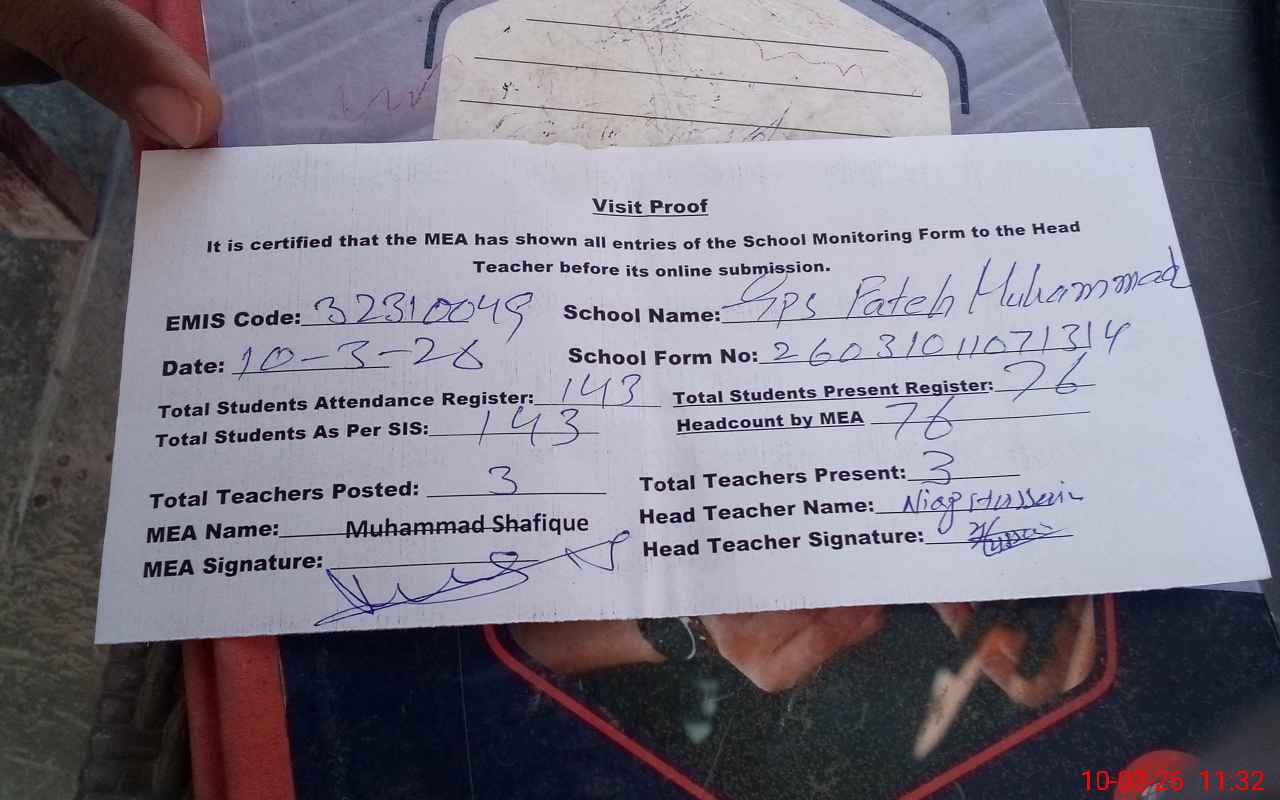 Visit Proof
It is certified that the MEA has shown all entries of the School Monitoring Form to the Head
Teacher before its online submission.
EMIS Code: 32310049 School Name: GPS Fateh Muhammad
Date: 10-3-26 School Form No: 26031011071314
Total Students Attendance Register: 143 Total Students Present Register: 76
Total Students As Per SIS: 143 Headcount by MEA 76
Total Teachers Posted: 3 Total Teachers Present: 3
MEA Name: Muhammad Shafique Head Teacher Name: Niaz Hussain
MEA Signature: Head Teacher Signature:
10-03-26 11:32